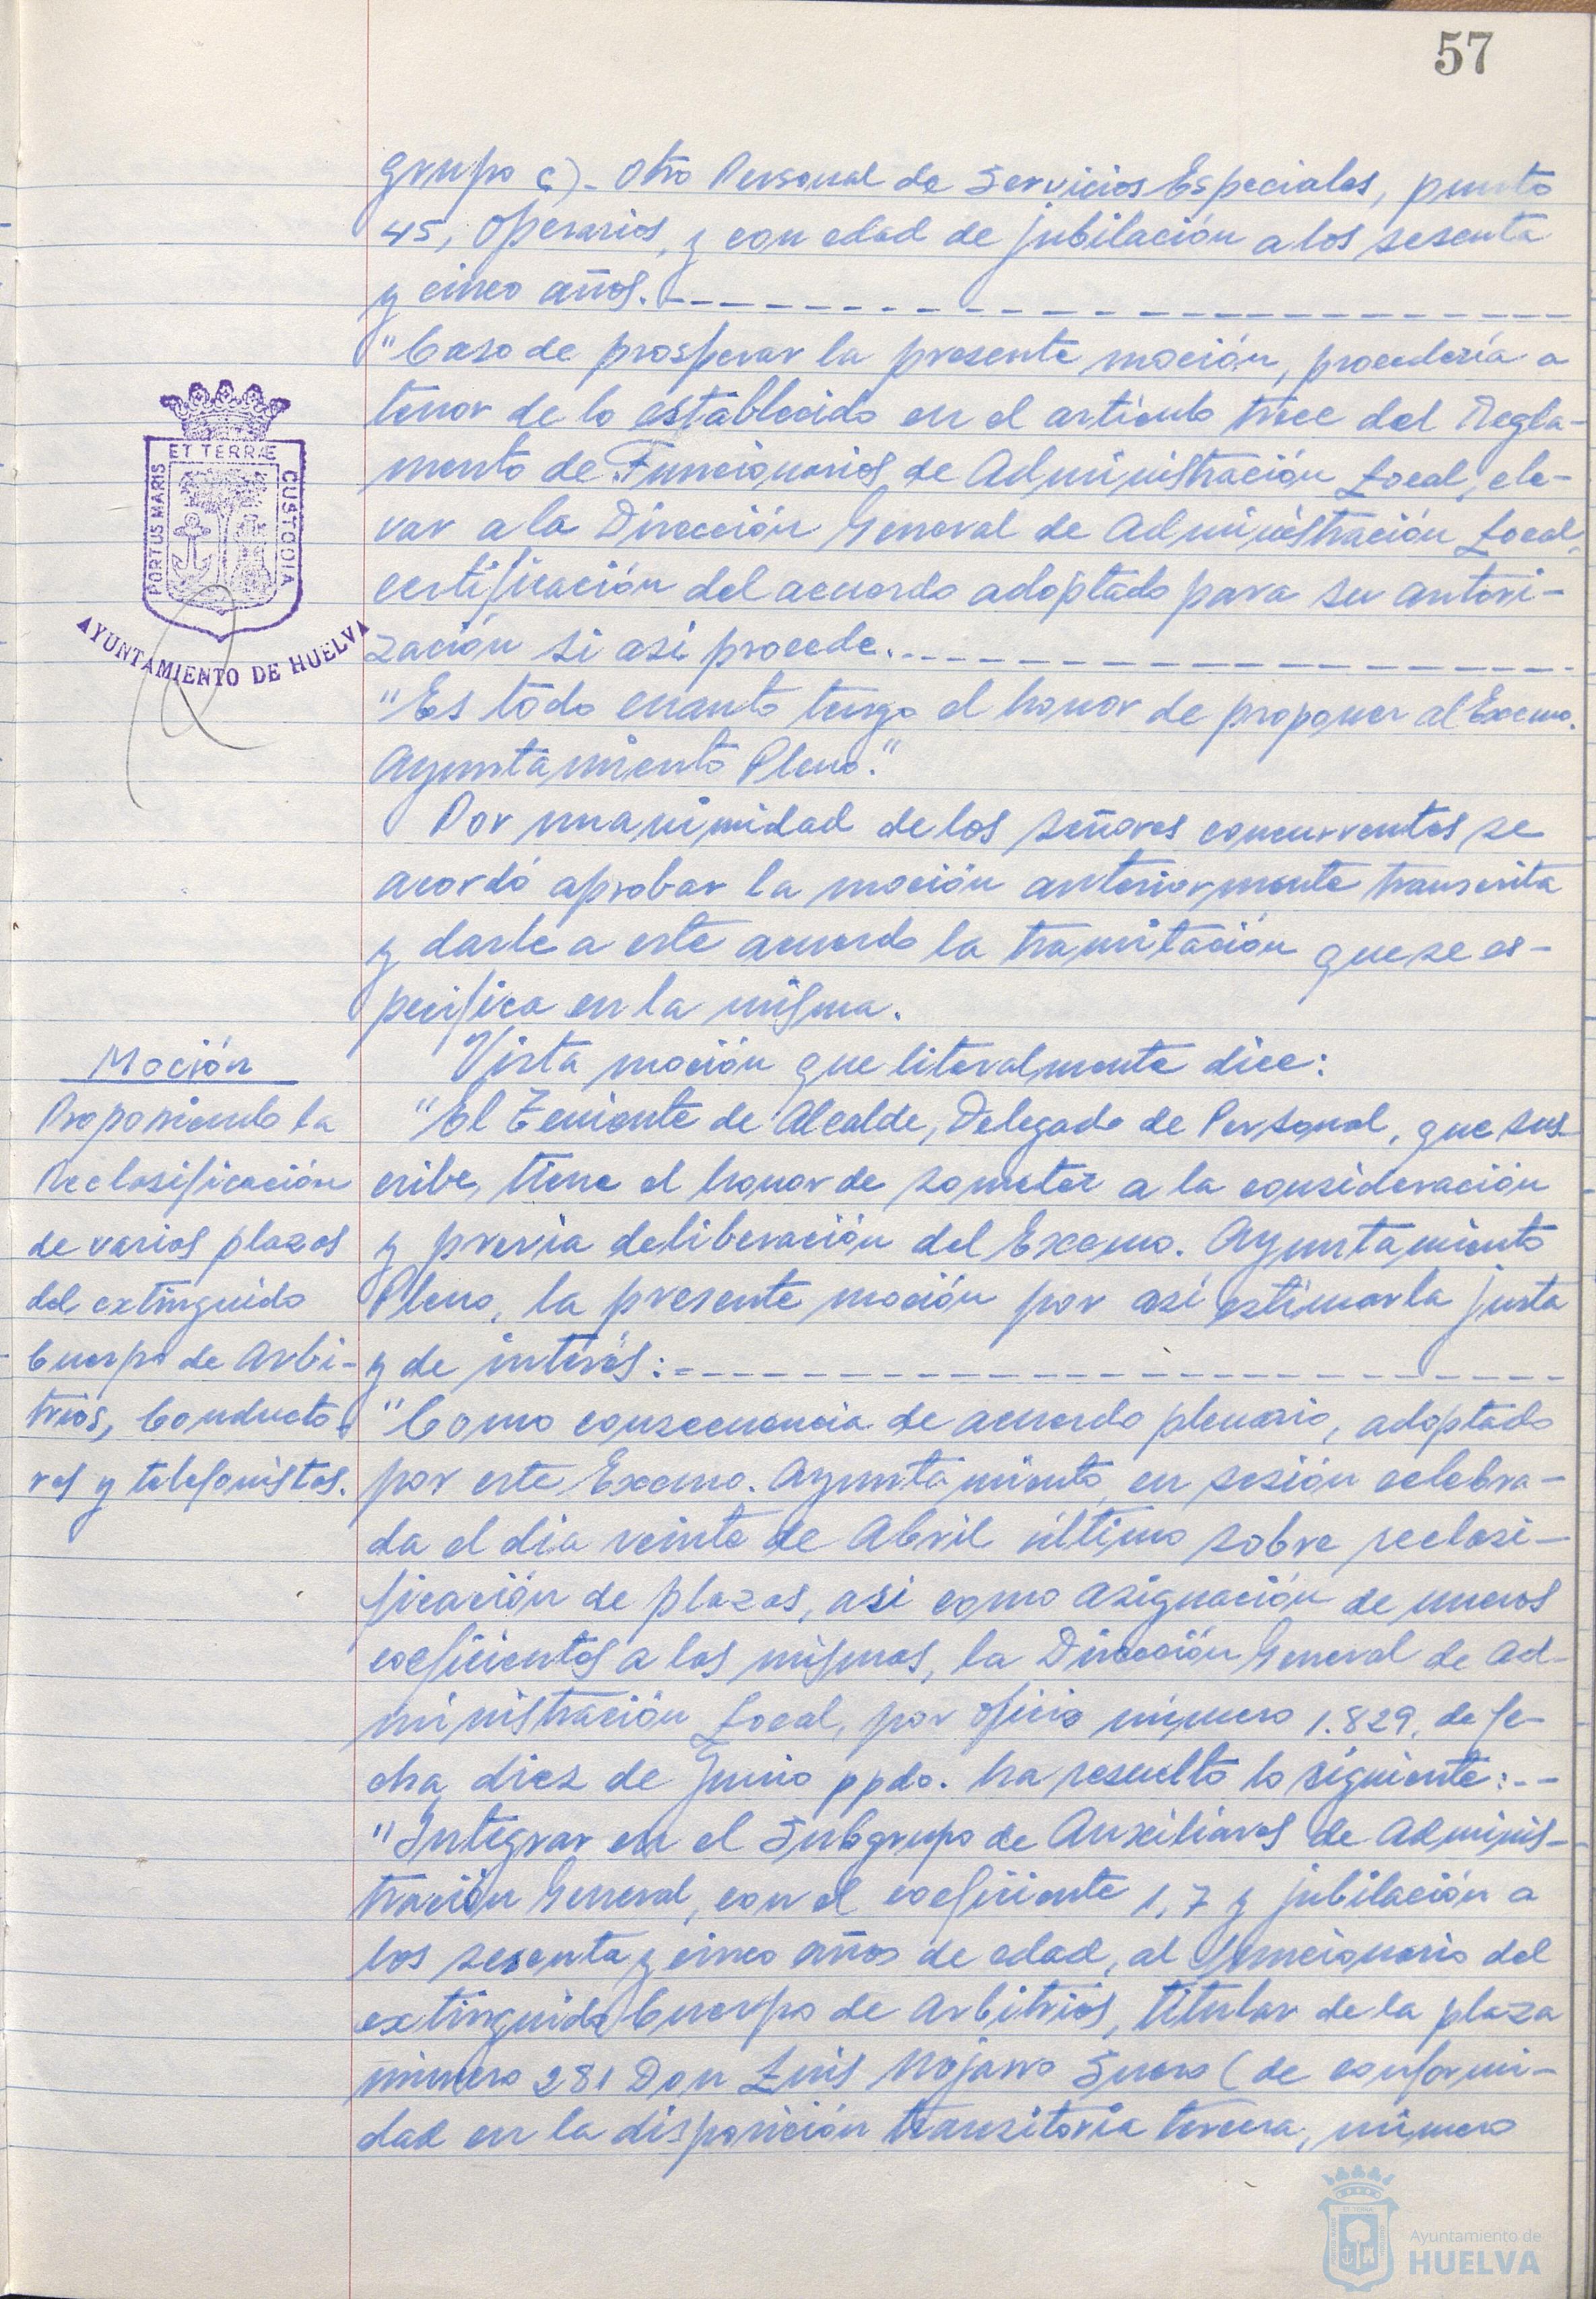 57
grupo c).- Otro Personal de Servicios Especiales, punto
45, Operarios, y con edad de jubilación a los sesenta
y cinco años.- - - - - - - - - - - - - - - - - - -
"Caso de prosperar la presente moción, procedería a
tenor de lo establecido en el artículo trece del Regla-
mento de Funcionarios de Administración Local, ele-
var a la Dirección General de Administración Local,
certificación del acuerdo adoptado para su autori-
zación si asi procede.- - - - - - - - - - - - - - -
"Es todo cuanto tengo el honor de proponer al Excmo.
Ayuntamiento Pleno."
Por unanimidad de los señores concurrentes se
acordó aprobar la moción anteriormente transcrita
y darle a este acuerdo la tramitación que se es-
pecifica en la misma.
Vista moción que literalmente dice:
"El Teniente de Alcalde, Delegado de Personal, que sus-
cribe, tiene el honor de someter a la consideración
y previa deliberación del Excmo. Ayuntamiento
Pleno, la presente moción por así estimarla justa
y de interés:- - - - - - - - - - - - - - - - - - -
"Como consecuencia de acuerdo plenario, adoptado
por este Excmo. Ayuntamiento, en sesión celebra-
da el dia veinte de Abril último sobre reclasi-
ficación de plazas, asi como asignación de nuevos
coeficientes a las mismas, la Dirección General de Ad-
ministración Local, por oficio número 1.829, de fe-
cha, diez de Junio ppdo. ha resuelto lo siguiente:- -
"Integrar en el Subgrupo de Auxiliares de Adminis-
tración General, con el coeficiente 1,7 y jubilación a
los sesenta y cinco años de edad, al funcionario del
extinguido Cuerpo de Arbitrios, titular de la plaza
número 281 Don Luis Mojarro Suero (de conformi-
dad en la disposición transitoria tercera, número
Moción
Proponiendo la
Reclasificación
de varias plazas
del extinguido
Cuerpo de Arbi-
trios, Conducto-
res y telefonistas.
PORTUS MARIS
ET TERRÆ
CUSTODIA
AYUNTAMIENTO DE HUELVA
Ayuntamiento de
HUELVA